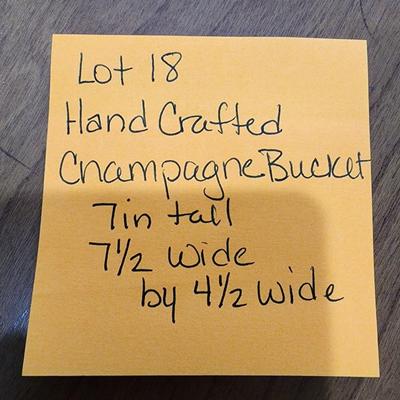 Lot 18
Hand Crafted
Champagne Bucket
7in tall
7 1/2 wide
by 4 1/2 wide